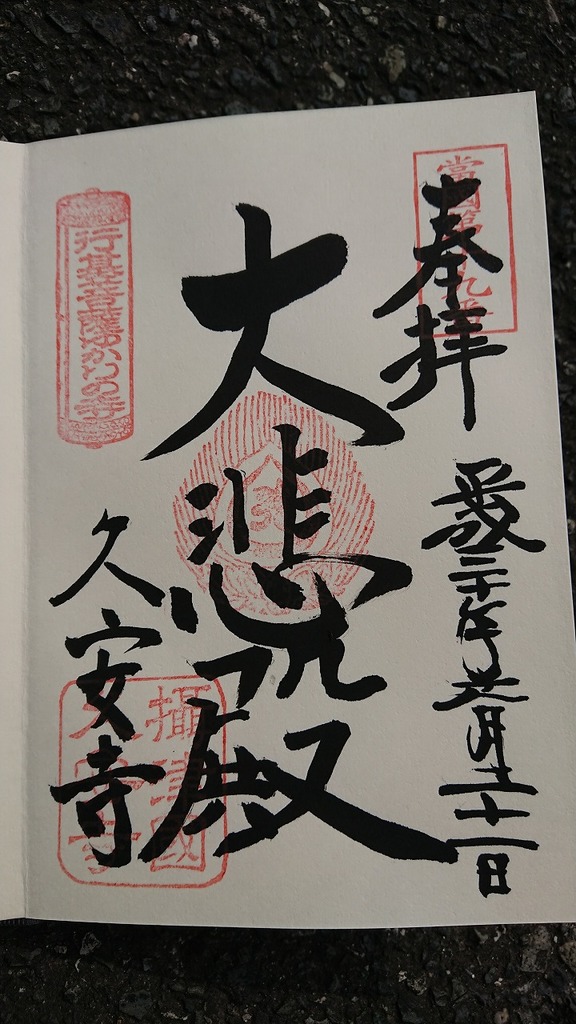 當國第十九番
奉拝
平成三十年 月二十一日
大悲殿
久安寺
攝津國
久安寺
行基菩薩ゆかりの寺